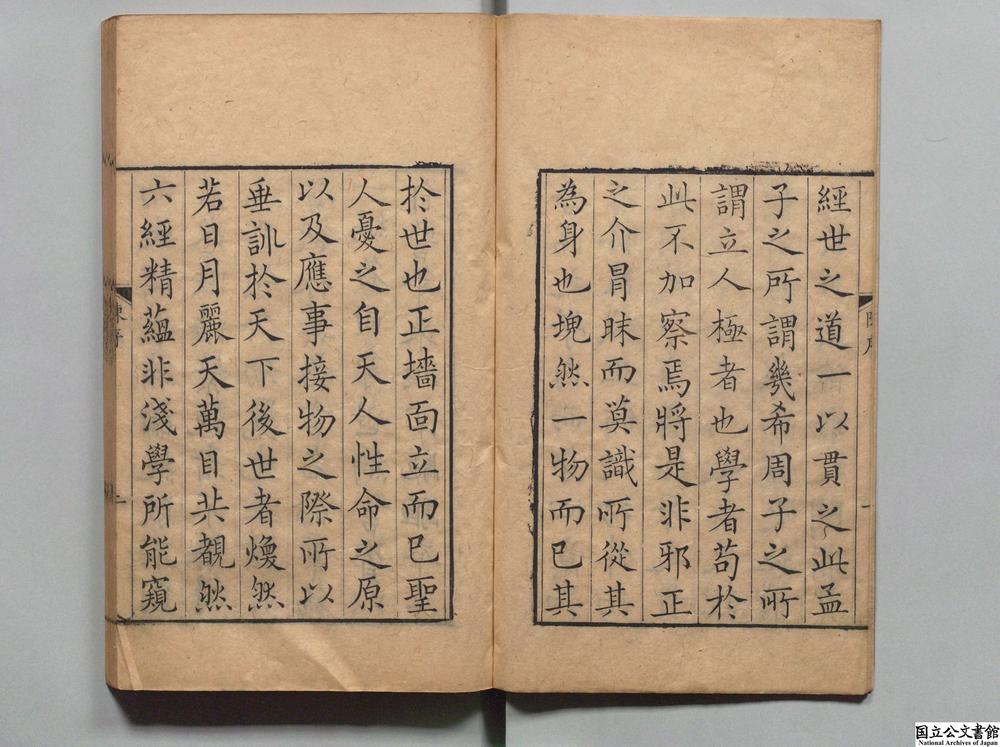 經世之道一以貫之此孟
子之所謂幾希周子之所
謂立人極者也學者苟於
此不加察焉將是非邪正
之介冒昧而莫識所從其
為身也塊然一物而已其
於世也正墻面立而已聖
人憂之自天人性命之原
以及應事接物之際所以
垂訓於天下後世者煥然
若日月麗天萬目共覩然
六經精蘊非淺學所能窺
陳序
一
陳序
二
国立公文書館
National Archives of Japan